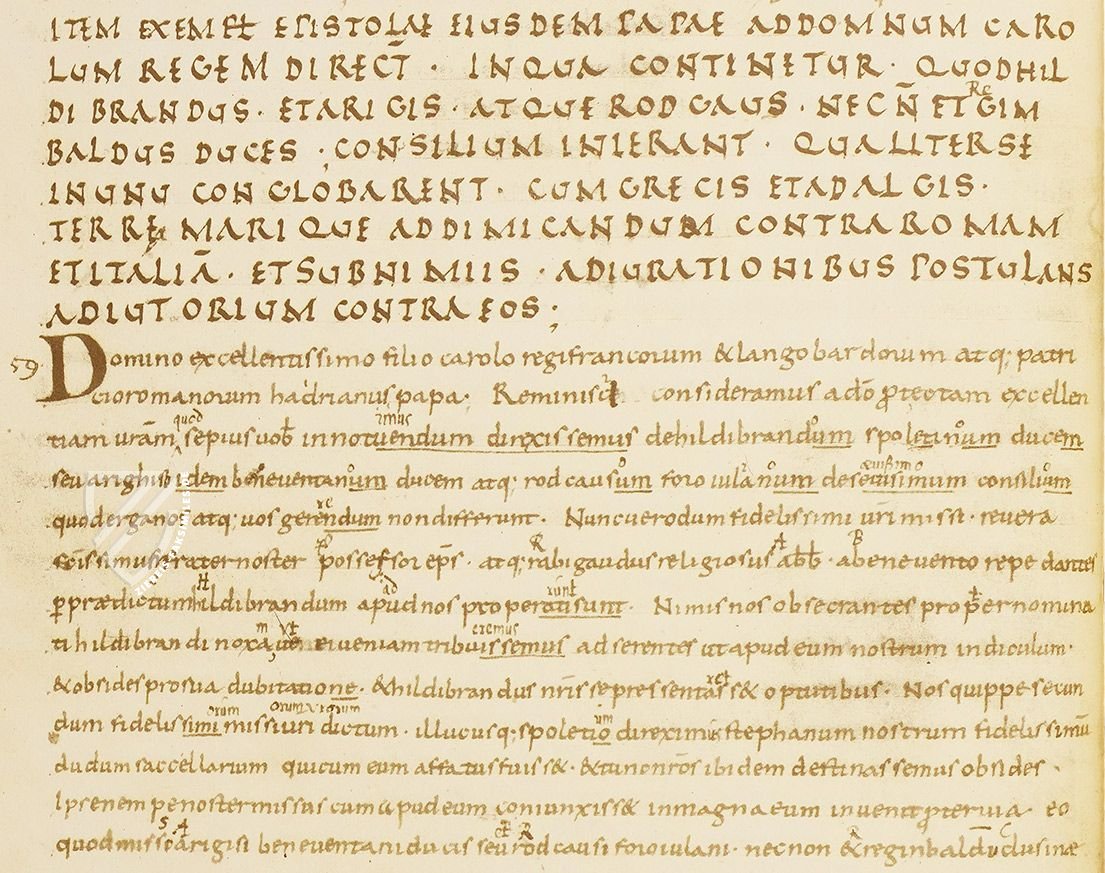 ITEM EXEMPL EPISTOLAE EIUSDEM PAPAE ADDOMNUM CARO
LUM REGEM DIRECT̄ · INQUA CONTINETUR · QUODHIL
DIBRANDUS · ETARIGIS · ATQUE RODGAUS · NECÑ ET REGIM
BALDUS DUCES · CONSILIUM INIERANT · QUALITERSE
INUNU CONGLOBARENT · CUMGRECIS ETADALGIS ·
TERRE MARIQUE ADDIMICANDUM CONTRAROMAM
ETITALIĀ · ETSUBNIMIIS · ADIURATIONIBUS POSTULANS
ADIUTORIUM CONTRAEOS ;
59 Domino excellentissimo filio carolo regifrancorum &langobardorum atq; patri
cioromanorum hadrianus papa · Reminisci consideramus adō p̄teotam excellen
tiam urām quod sepius uob̄ innotuendum imus direxissemus dehildibrandum spoletinum ducem
seu arighis idem beneuentanum ducem atq; rodcausum foroiulanum deseuissimum consilium
quoderganos atq; uos gerendum re nondifferunt · Nuncuerodumfidelissimi uri missi · reuera
sc̄issimusfraternoster possessor ep̄s · atq; rabigaudus religiosus abb · abeneuento repedantes
p̄ prædictum hildibrandum ad apudnos properatisunt · Nimis nos obsecrantes pro p̄ernomina
ti hildibrandi noxa ut ei ueniam tribuissemus eremus adserentes ut apud eum nostrum indiculum ·
&obsidesprosua dubitatione · &hildibrandus nr̄is sepresentass& ret optutibus · Nos quippe secun
dum fidelissimi orum missi uri dictum · illucusq; spoletio um direximus stephanum nostrum fidelissimū
dudum saccellarium quicum eum affatusfuiss& · &tunonr̄os ibidem destinassemus obsides ·
Ipsenempe nostermissus cum apud eum coniunxiss& inmagna eum inuenit p̄teruia · eo
quodmissi arigisi beneuentani ducis seu rodcausi foroiulani · necnon &reginbaldi ducis